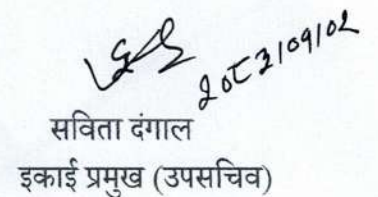 २०८२।०१।०२
सविता दंगाल
इकाई प्रमुख (उपसचिव)